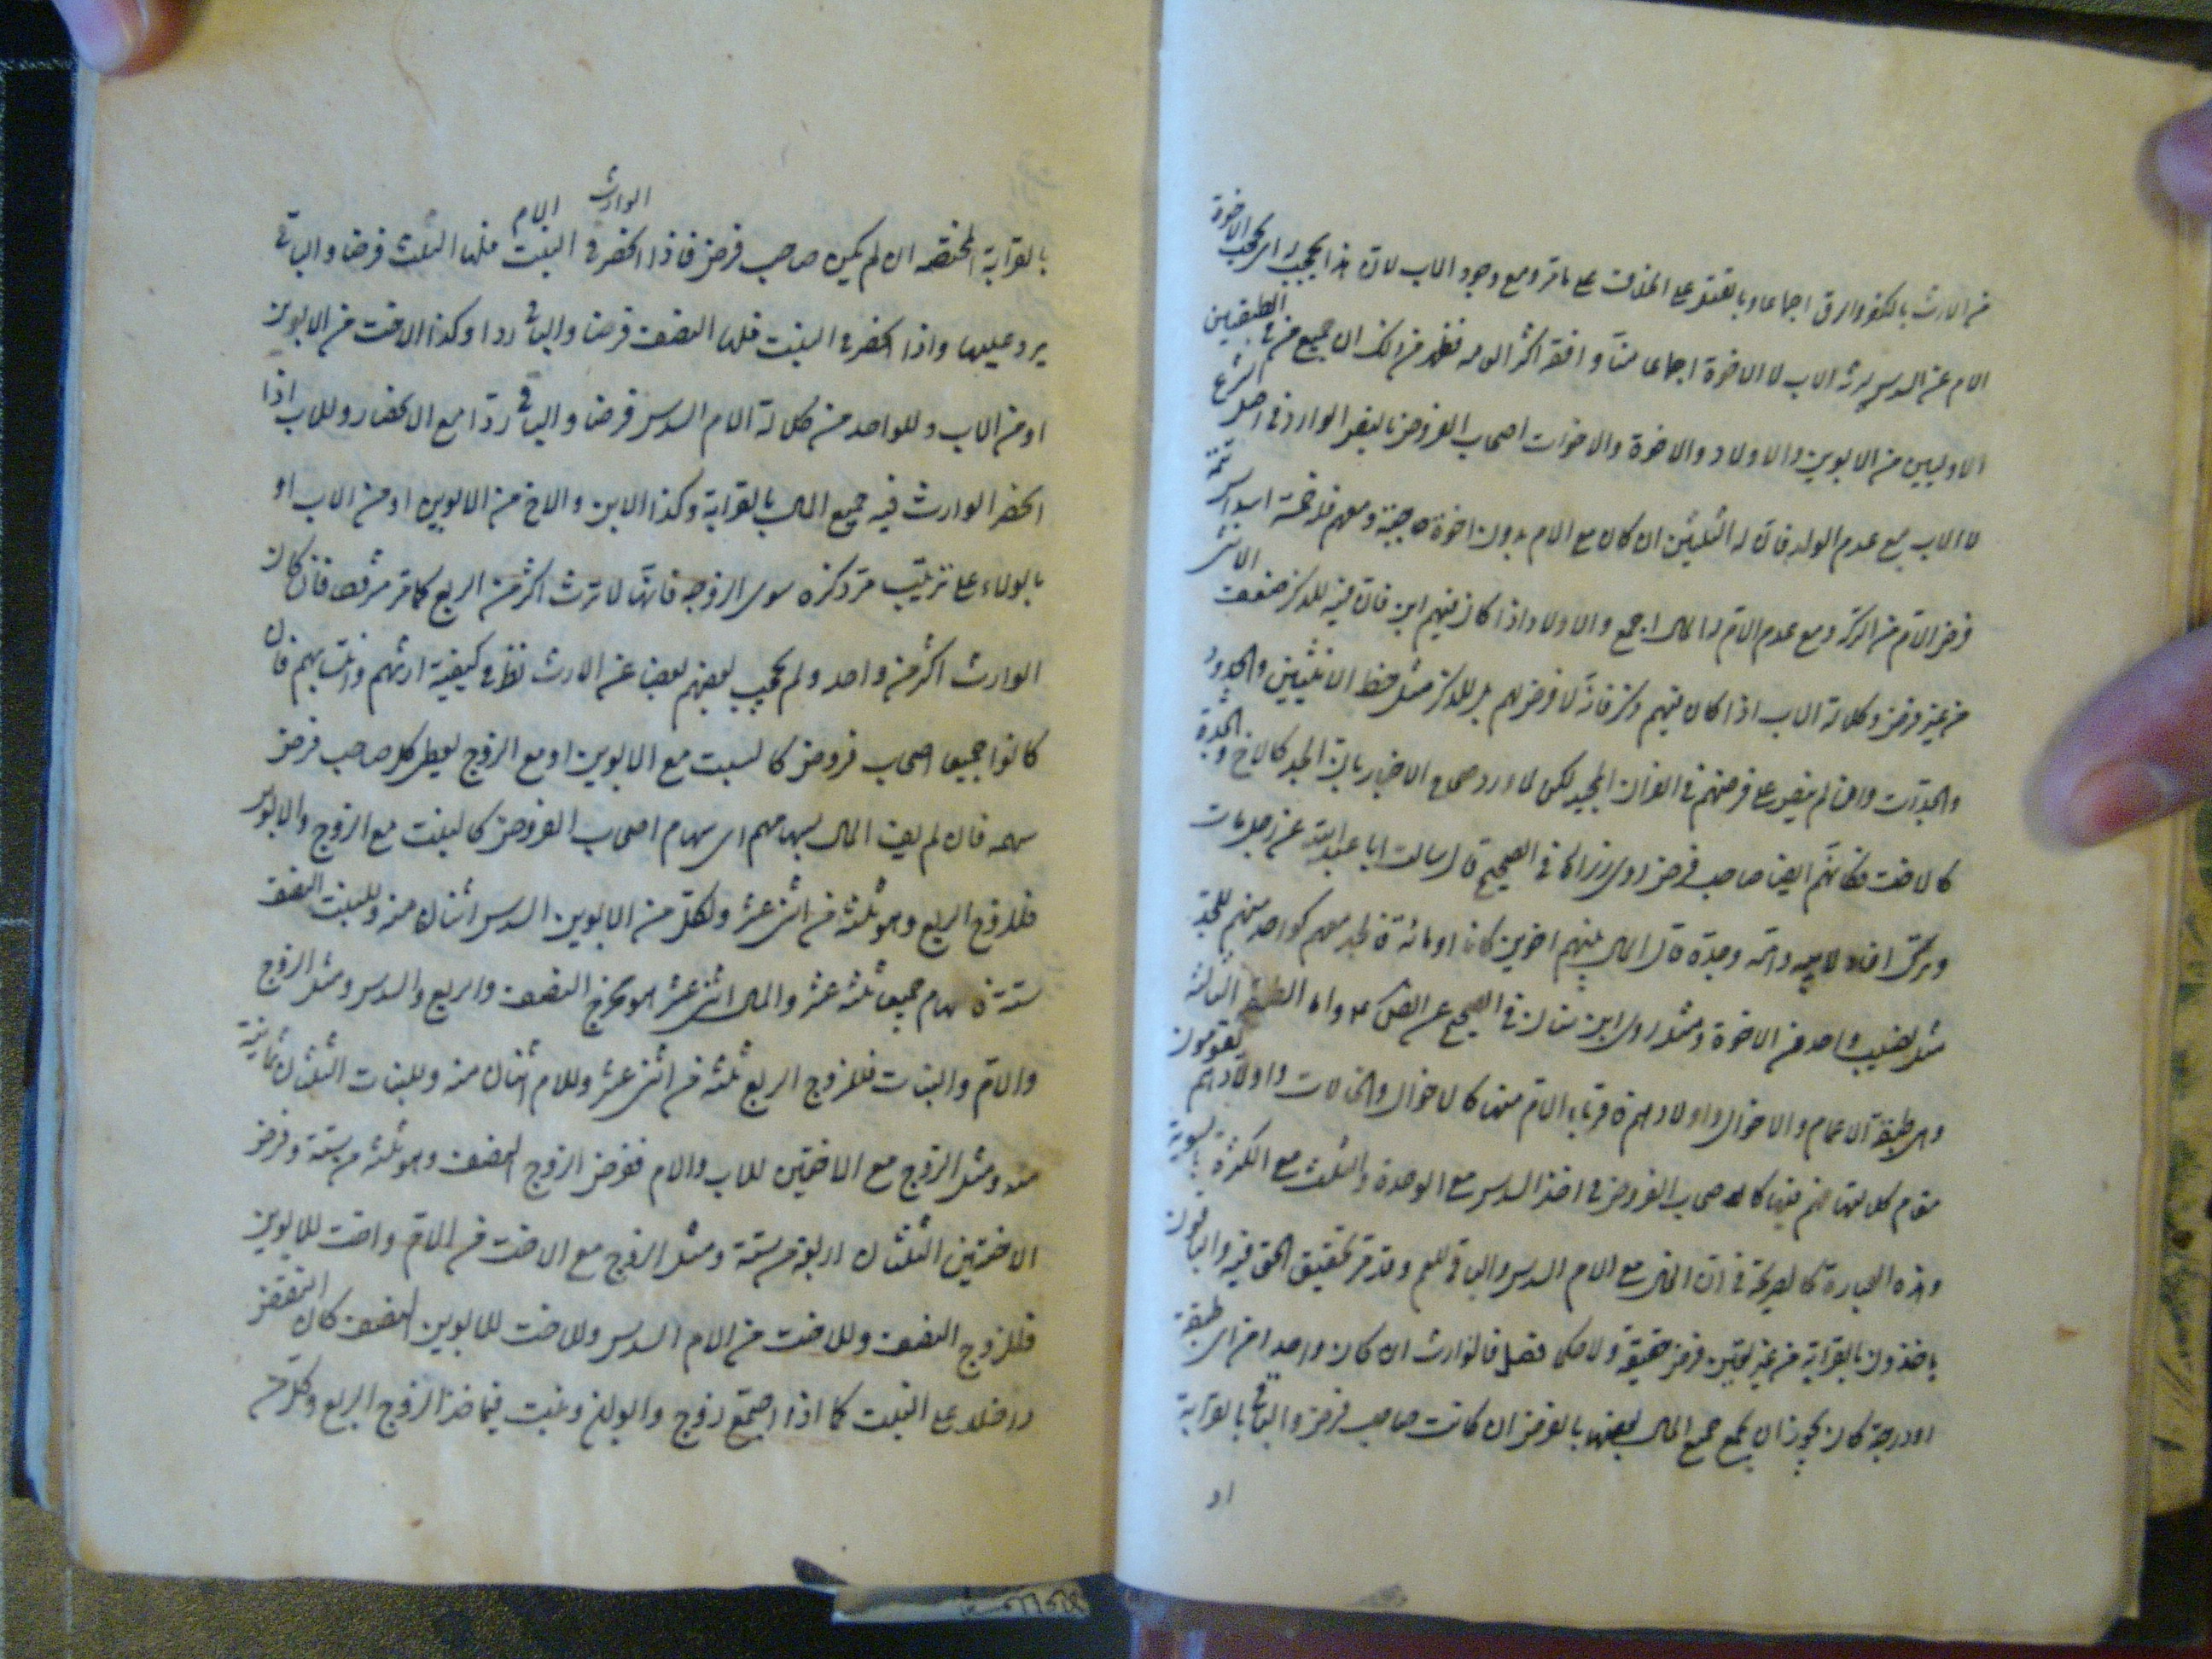 من الارث بالكفر والرق اجماعا وبالقتل على الخلاف على ما مر ومع وجود الاب لان هذا يحجب له اى يحجب الاخوة
الام عن السدس يرثه الاب لا الاخوة اجماعا منا وافقه اكثر فظهر من ذلك ان جميع من فى الطبقتين
الاوليين من الابوين والاولاد والاخوة والاخوات اصحاب الفروض الوارد فى اصل الشرع
لا الاب مع عدم الولد فان له الثلثين ان كان مع الام بدون اخوة حاجبة ومعهم فله خمسة اسداس تتمة
فرض الام من التركة ومع عدم الام له المال اجمع والاولاد اذا كان فيهم ابن فان فيه للذكر ضعف الانثى
من غير فرض وكلالة الاب اذا كان فيهم ذكر فانه لا فرض لهم بل للذكر مثل حظ الانثيين والجدود
والجدات وان لم ينص على فرضهم فى القران المجيد لكن لما ورد صحاح الاخبار بان الجد كالاخ والجدة
كالاخت فكانهم ايضا صاحب فرض روى زرارة فى الصحيح قال سالت ابا عبد الله عن رجل مات
وترك اخاه لابيه وامه وجده قال المال بينهم اخوين كانا او مائة فالجد معهم كواحد منهم للجد
مثل نصيب واحد من الاخوة ومثله روى ابن سنان فى الصحيح عن الصادق ع واما الطبقة الثالثة
وهى طبقة الاعمام والاخوال واولادهم فاقرباء الام منها كالاخوال والخالات واولادهم يقومون
مقام كلالتها فهم فيها كاصحاب الفروض فى اخذ السدس مع الوحدة والثلث مع الكثرة بالسوية
وهذه العبارة كالصريحة فى ان الخال مع العم السدس والباقى للعم وقد مر تحقيق الحق فيه والباقون
ياخذون بالقرابة من غير تعيين فرض حقيقة ولا حكما فصل فالوارث ان كان واحدا من اى طبقة
او درجة كان يجوز ان يجمع جميع المال بعضها بالفرض ان كانت صاحب فرض والباقى بالقرابة
او
الوارث الام
بالقرابة المختصة ان لم يكن صاحب فرض فاذا انحصر فى البنت فلها الثلث فرضا والباقى
يرد عليها واذا انحصر فى البنت فلها النصف فرضا والباقى ردا وكذا الاخت من الابوين
او من الاب وللواحد من كلالة الام السدس فرضا والباقى ردا مع الانحصار وللاب اذا
انحصر الوارث فيه جميع المال بالقرابة وكذا الابن والاخ من الابوين او من الاب او
بالولاء على ترتيب مر ذكره سوى الزوجة فانها لا ترث اكثر من الربع كما مر فان كان
الوارث اكثر من واحد ولم يحجب بعضهم بعضا عن الارث نظر فى كيفية ارثهم وانسابهم فان
كانوا جميعا اصحاب فروض كالبنت مع الابوين او مع الزوج يعطى كل صاحب فرض
سهمه فان لم يف المال بسهامهم اى سهام اصحاب الفروض كالبنت مع الزوج والابوين
فللزوج الربع وهو ثلثة من اثنى عشر ولكل من الابوين السدس اثنان منه وللبنت النصف
ستة فسهام جميعا ثلثة عشر والمال اثنى عشر هو مخرج النصف والربع والسدس ومثل الزوج
والام والبنات فللزوج الربع ثلثة من اثنى عشر وللام اثنان منه وللبنات الثلثان ثمانية
منه ومثل الزوج مع الاختين للاب والام ففرض الزوج النصف وهو ثلثة من ستة وفرض
الاختين الثلثان اربعة من ستة ومثل الزوج مع الاخت من الام واخت للابوين
فللزوج النصف وللاخت من الام السدس وللاخت للابوين النصف كان النقص
داخلا على البنت كما اذا اجتمع زوج وابوان وبنت فياخذ الزوج الربع وكل من